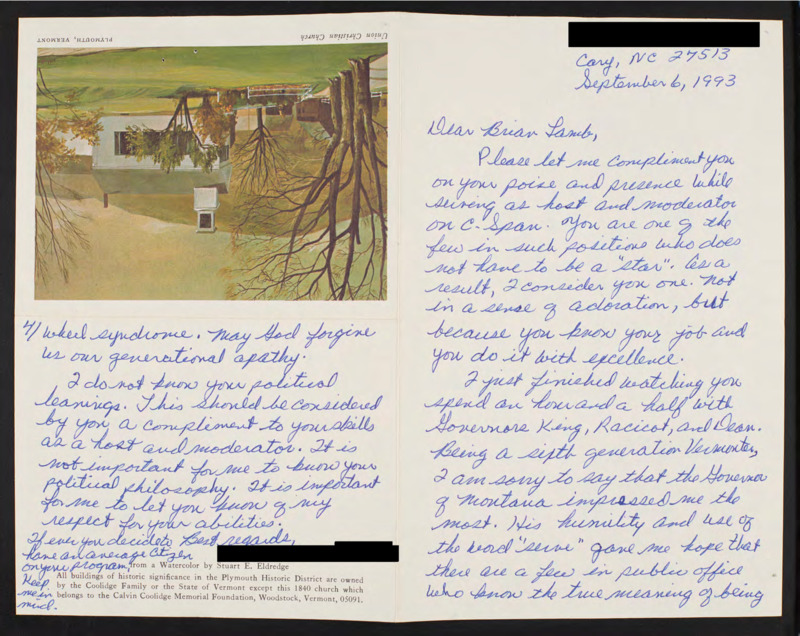 Cary, NC 27513
September 6, 1993
Dear Brian Lamb,
Please let me compliment you
on your poise and presence while
serving as host and moderator
on C-Span. You are one of the
few in such positions who does
not have to be a "star". As a
result, I consider you one. Not
in a sense of adoration, but
because you know your job and
you do it with excellence.
I just finished watching you
spend an hour and a half with
Governors King, Racicot, and Dean.
Being a sixth generation Vermonter,
I am sorry to say that the Governor
of Montana impressed me the
most. His humility and use of
the word "serve" gave me hope that
there are a few in public office
who know the true meaning of being
4/ wheel syndrome. May God forgive
us our generational apathy.
I do not know your political
leanings. This should be considered
by you, a compliment to your skills
as a host and moderator. It is
not important for me to know your
political philosophy. It is important
for me to let you know of my
respect for your abilities.
Best regards,
If ever you decide to
have an average citizen
on your program,
Keep
me in
mind.
from a Watercolor by Stuart E. Eldredge
All buildings of historic significance in the Plymouth Historic District are owned
by the Coolidge Family or the State of Vermont except this 1840 church which
belongs to the Calvin Coolidge Memorial Foundation, Woodstock, Vermont, 05091.
Union Christian Church
PLYMOUTH, VERMONT